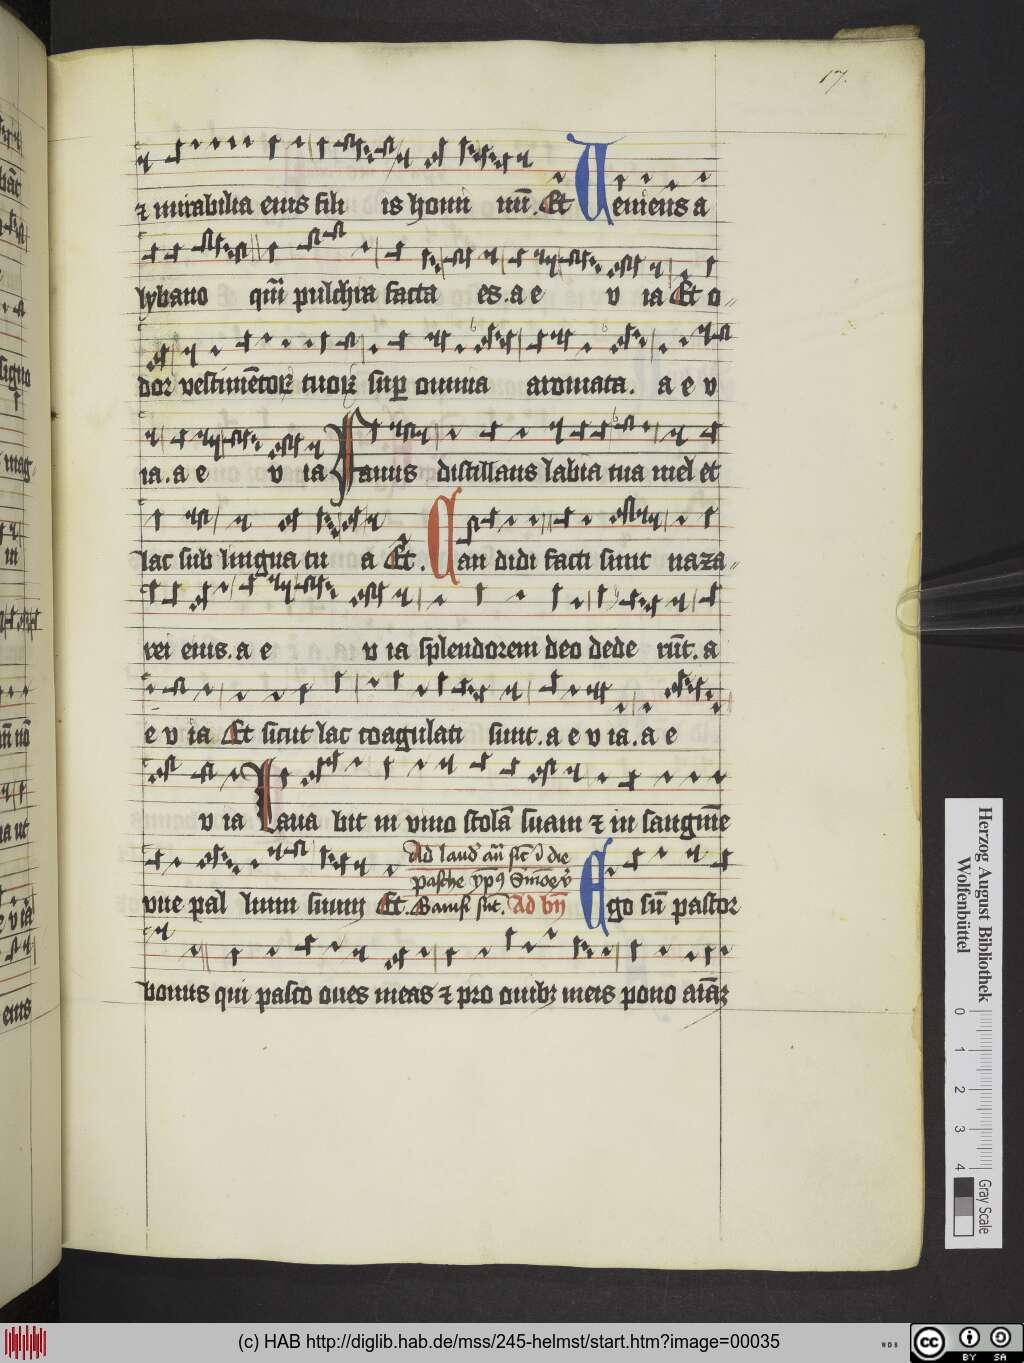 17.
⁊ mirabilia eius fili is homi nū. Et Veniens a
lybano qm̄ pulchra facta es. a e v ia Et o
dor vestimētoꝝ tuoꝝ suꝑ omnia aromata. a e v
ia. a e v ia Fauus distillans labia tua mel et
lac sub lingua tu a Et. Can didi facti sunt naza
rei eius. a e v ia splendorem deo dede rūt. a
e v ia Et sicut lac coagulati sunt. a e v ia. a e
v ia Laua bit in vino stolā suam ⁊ in sanguīe
Ad laud' añ sic ī die
pasche
vue pal lium suum Et. Ad bn̄ Ego sū pastor
bonus qui pasco oues meas ⁊ pro ouibꝫ meis pono aīaꝫ
bāt
signo
mag
m
ia ut
e v ia
eius
Herzog August Bibliothek
Wolfenbüttel
0 1 2 3 4
Gray Scale
(c) HAB http://diglib.hab.de/mss/245-helmst/start.htm?image=00035
WDB
cc
BY SA